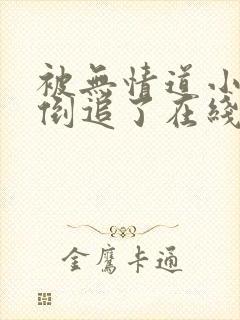 被無情道小
倒追了在綫
金鷹卡通